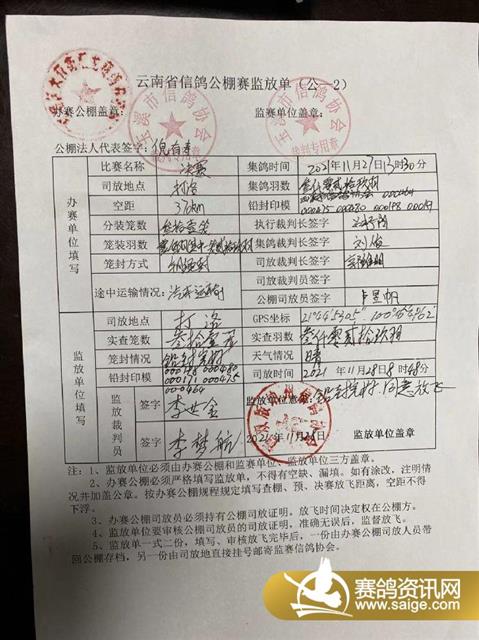 云南省信鸽公棚赛监放单（公—2）
办赛公棚盖章： 监赛单位盖章：
玉溪市信鸽协会
裁判专用章
玉溪市信鸽协会
裁判专用章
公棚法人代表签字：
办赛单位填写
比赛名称 决赛 集鸽时间 2021年11月27日13时30分
司放地点 打洛 集鸽羽数 叁仟零贰拾玖羽
空距 铅封印模
000475 000480 000198 000171
分装笼数 叁拾壹笼 执行裁判长签字
笼装羽数 集鸽裁判长签字 刘俊
笼封方式 司放裁判长签字
途中运输情况： 司放裁判员签字
公棚司放员签字 卢昱帆
监放单位填写
司放地点 打洛 GPS坐标
实查笼数 叁拾壹笼 实查羽数 叁仟零贰拾玖羽
笼封情况 铅封完好 天气情况 晴
铅封印模 000198 000480 司放时间 2021年11月28日8时48分
000171 000475
000464
监放裁判员 签字 李世金 监放单位意见： 同意放飞
签字 李梦航 监放单位盖章
注：1、监放单位必须由办赛公棚和监赛单位、监放单位三方盖章。
2、办赛公棚必须严格填写监放单，不得有空缺、漏填。如有涂改，注明情
况并加盖公章。按办赛公棚规程规定填写查棚、预、决赛放飞距离，空距不得
下浮。
3、办赛公棚司放员必须持有公棚司放证明。放飞时间决定权在公棚方。
4、监放单位要审核公棚司放员的司放证明。准确无误后，监督放飞。
5、监放单一式二份，填写、审核放飞完毕后，一份由办赛公棚司放人员带
回公棚存档，另一份由司放地直接挂号邮寄监赛信鸽协会。
赛鸽资讯网
www.saige.com